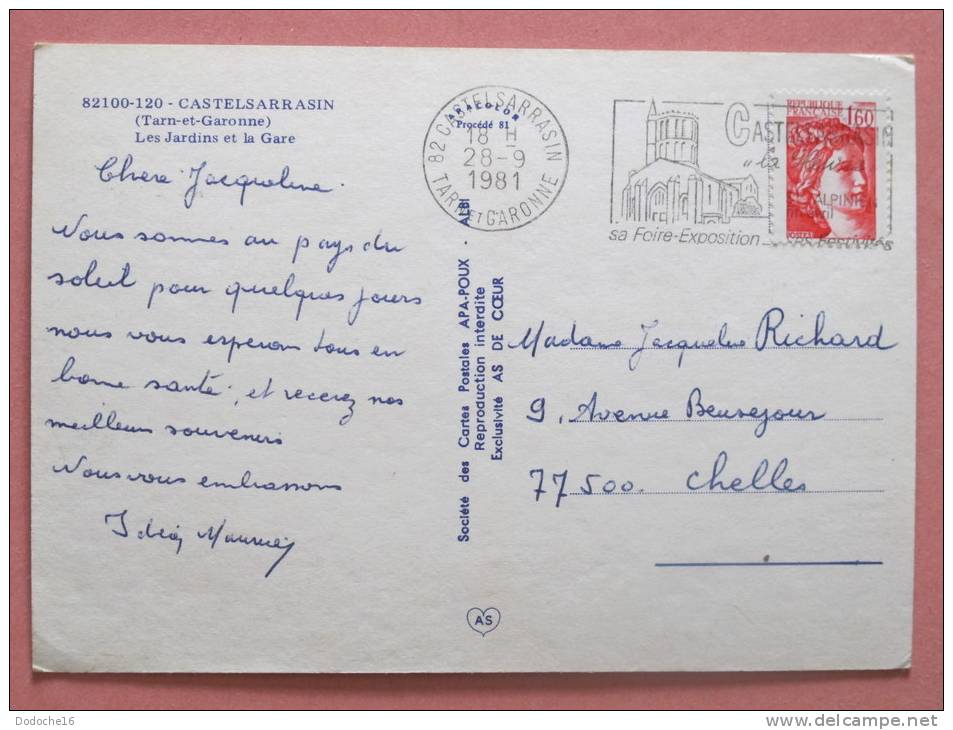 82100-120 - CASTELSARRASIN
(Tarn-et-Garonne)
Les Jardins et la Gare
Chère Jacqueline.
Nous sommes au pays du
soleil pour quelques jours
nous vous espérons tous en
bonne santé, et recevez nos
meilleurs souvenirs
Nous vous embrassons
APACOLOR
Procédé 81
82 CASTELSARRASIN
18 H
28-9
1981
TARN ET GARONNE
Société des Cartes Postales APA-POUX - ALBI
Reproduction interdite
Exclusivité AS DE CŒUR
AS
CASTELSARRASIN
"la
ALPINIE
sa Foire-Exposition
REPUBLIQUE
FRANÇAISE
1,60
POSTES
Madame Jacqueline Richard
9, Avenue Beausejour
77500. Chelles
Dodoche16
www.delcampe.net